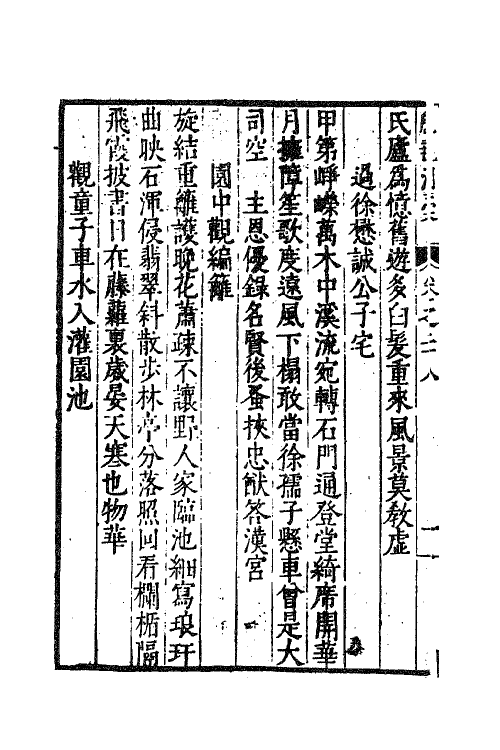 卷之二八
氏廬爲憶舊遊多白髮重來風景莫教虛
過徐懋誠公子宅
甲第崢嶸萬木中溪流宛轉石門通登堂綺席開華
月擁障笙歌度遠風下榻敢當徐孺子懸車曾是大
司空　主恩優錄名賢後蚤挾忠猷答漢宮
園中觀編籬
旋結重籬護晚花蕭疎不讓野人家臨池細寫琅玕
曲映石渾侵翡翠斜散步林亭分落照回看欄楯隔
飛霞披書日在藤蘿裏歲晏天寒也物華
觀童子車水入灌園池